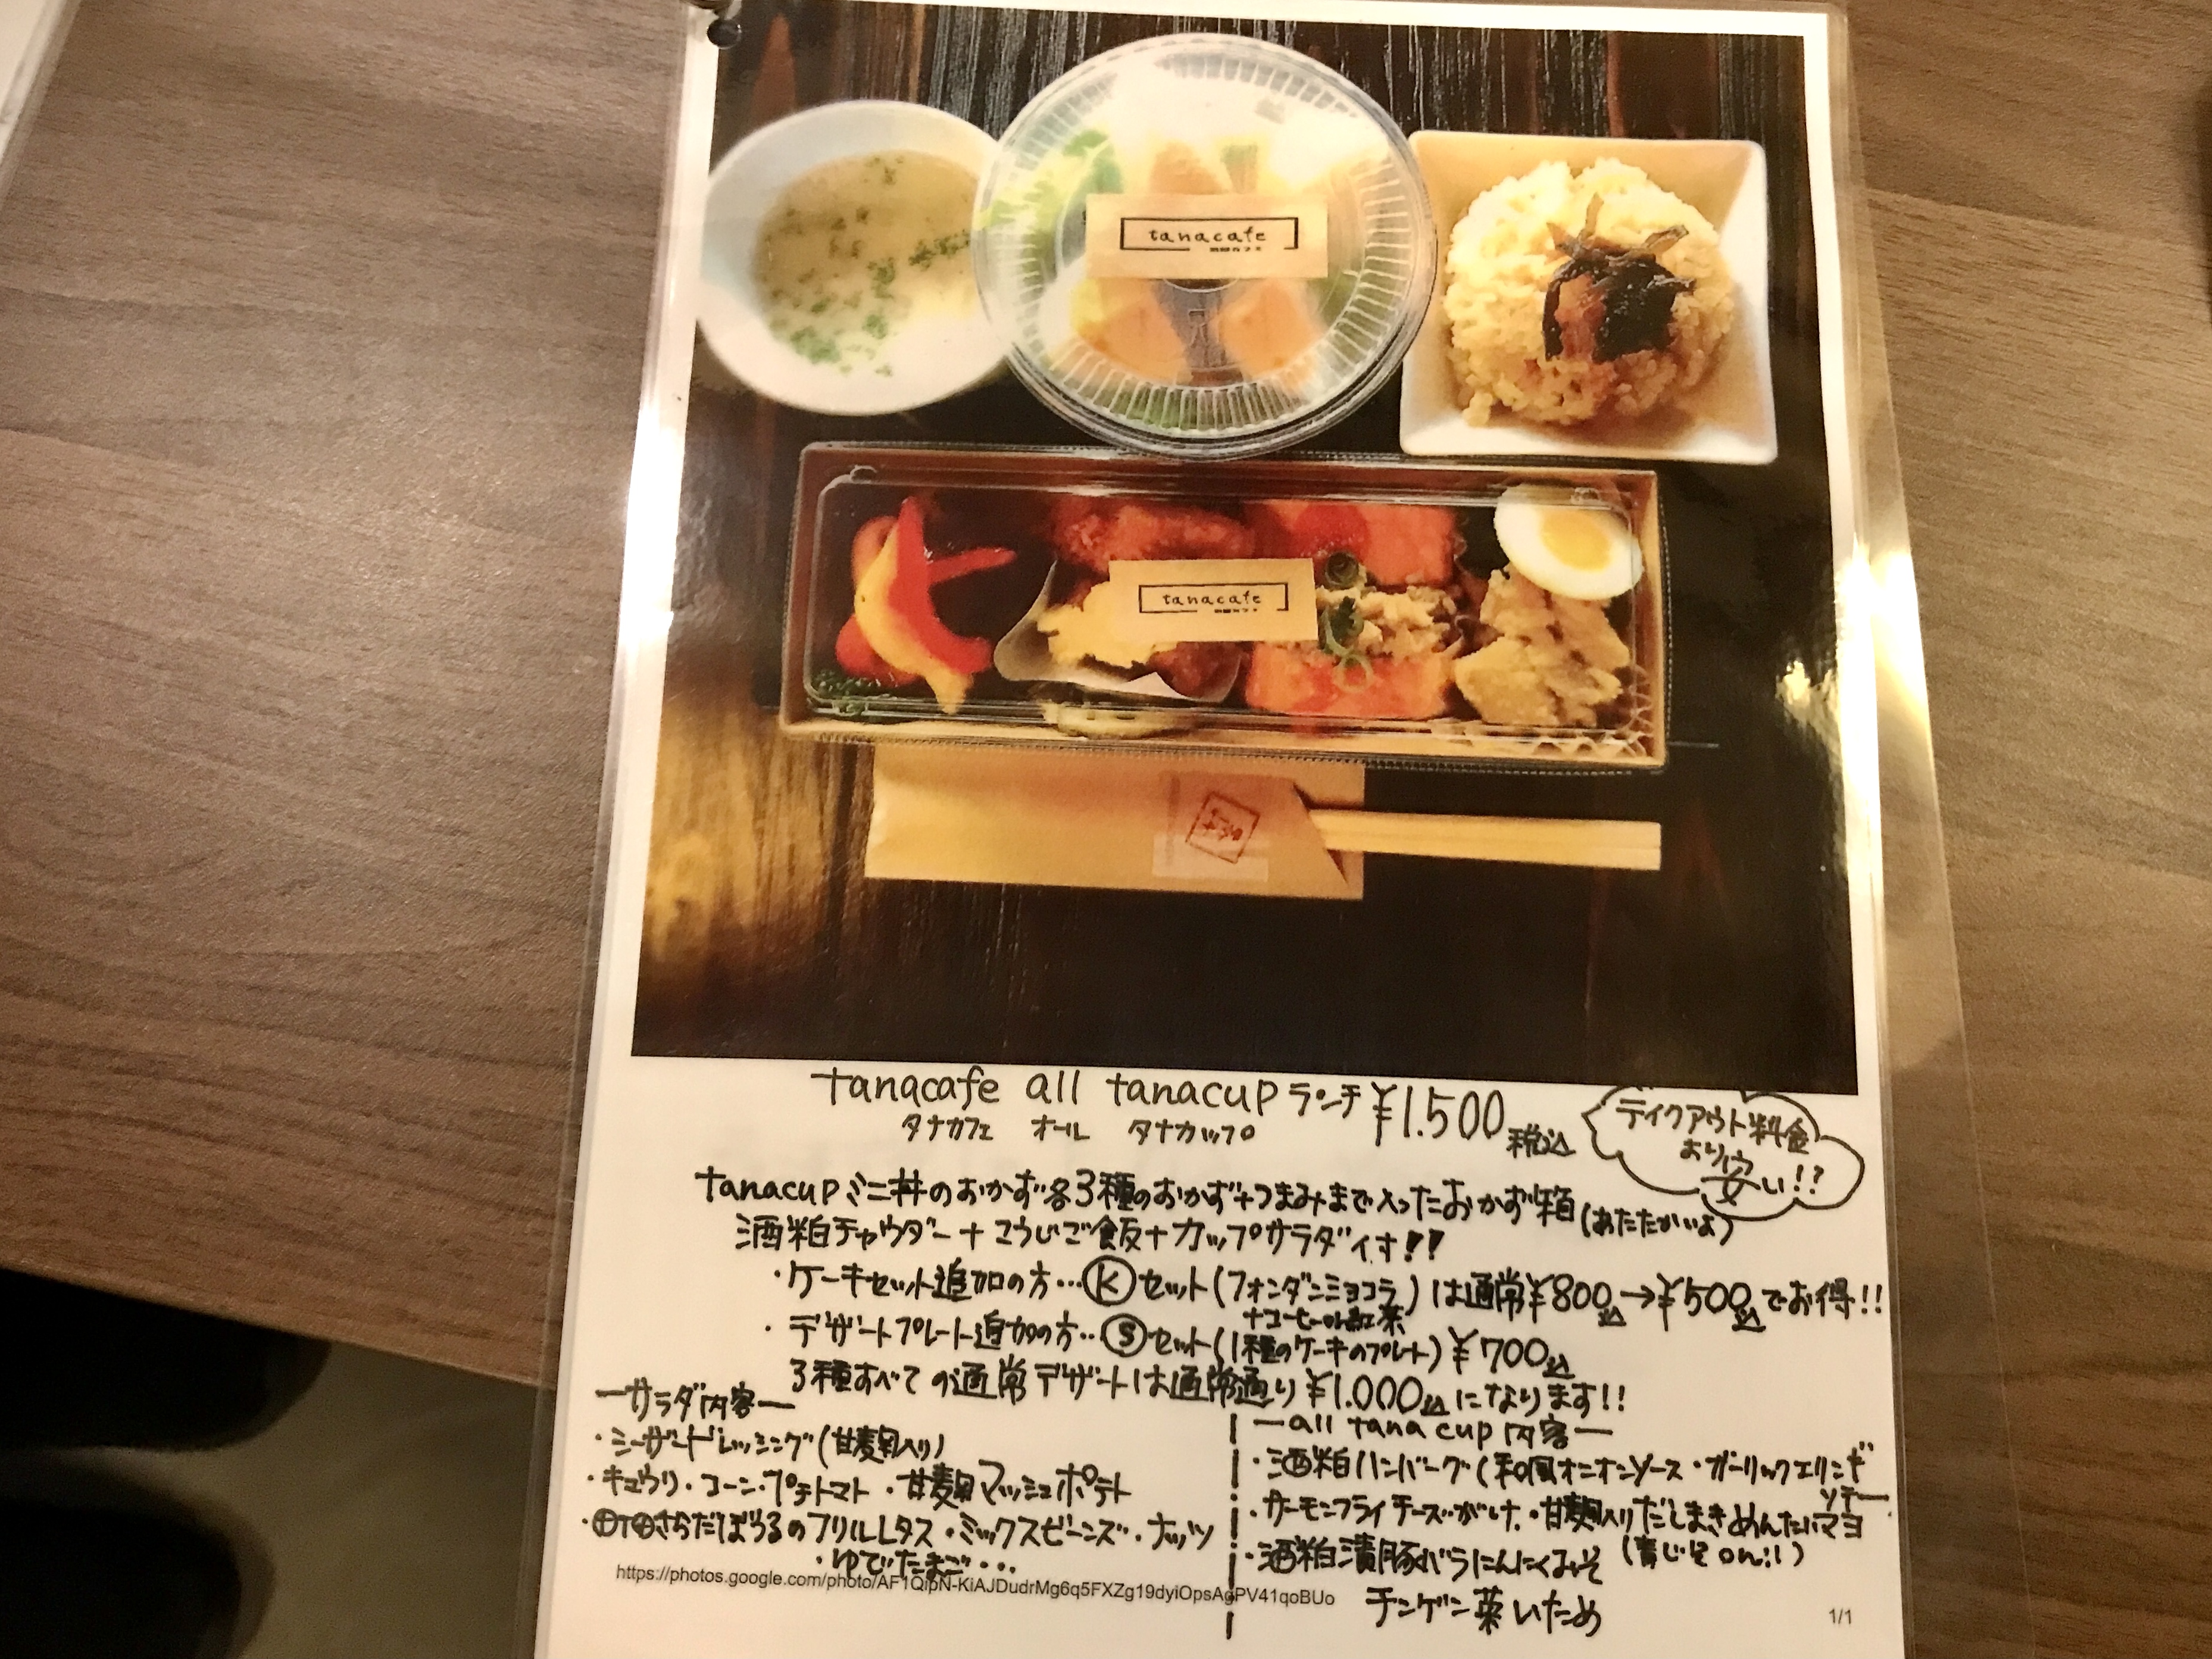 tanacafe
tanacafe
tanacafe all tanacup ランチ ¥1.500 税込
タナカフェ オール タナカップ
テイクアウト料金
より
安い!?
tanacupミニ丼のおかず各3種のおかず+つまみまで入ったおかず箱(あたたかいよ)
酒粕チャウダー+こうじご飯+カップサラダイす!!
・ケーキセット追加の方…Ⓚセット(フォンダンショコラ)は通常¥800込→¥500込でお得!!
+コーヒーor紅茶
・デザートプレート追加の方…Ⓢセット(1種のケーキのプレート)¥700込
3種すべての通常デザートは通常通り¥1.000込になります!!
ーサラダ内容ー
・シーザードレッシング(甘麹入り)
・キュウリ・コーン・プチトマト・甘麹マッシュポテト
さらだぼうるのフリルレタス・ミックスビーンズ・ナッツ
・ゆでたまご…
https://photos.google.com/photo/AF1QipN-KiAJDudrMg6q5FXZg19dyiOpsAgPV41qoBUo
ーall tana cup 内容ー
・酒粕ハンバーグ(和風オニオンソース・ガーリックエリンギ
ソテー
・サーモンフライチーズがけ・甘麹入りだしまきめんたいマヨ
(青じそon!!)
・酒粕漬豚バラにんにくみそ
チンゲン菜いため
1/1